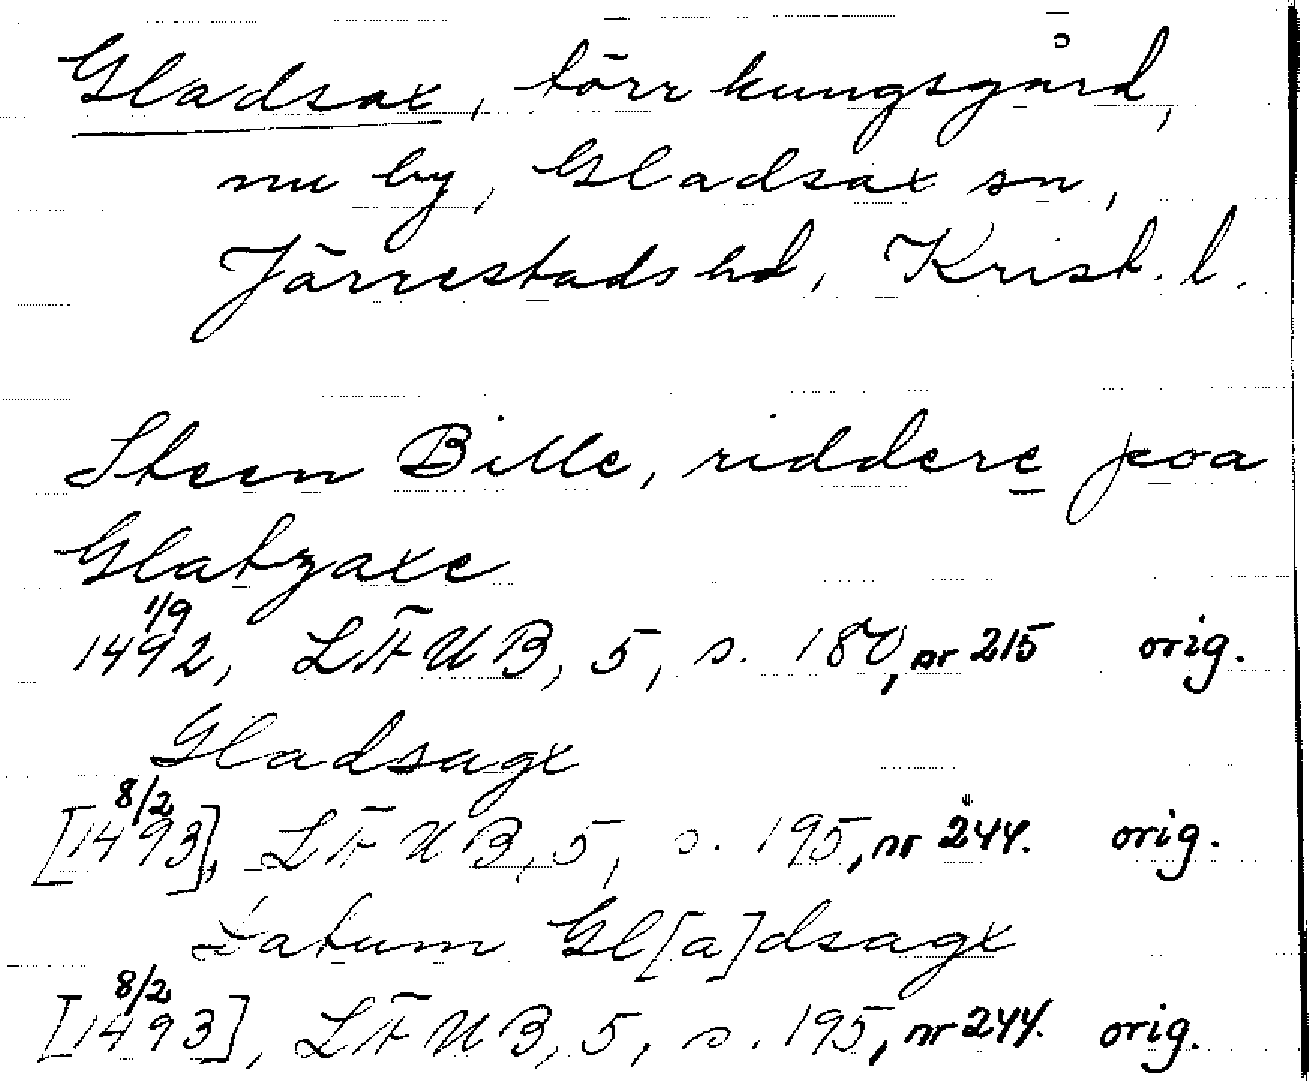 Gladsax, förr kungsgård,
nu by, Gladsax sn,
Järrestads hd, Krist. l.
Steen Bille, riddere poa
Glatzaxe
1/9
1492, LÄUB, 5, s. 180, nr 215 orig.
Gladsagx
8/2
[1493], LÄUB, 5, s. 195, nr 244. orig.
Datum Gl[a]dsagx
8/2
[1493], LÄUB, 5, s. 195, nr 244. orig.